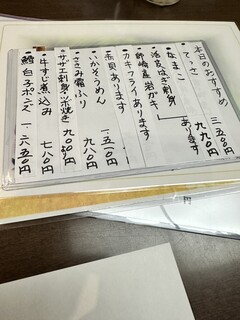 本日のおすすめ
てっさ 三五〇〇円
なまこ 九九〇円
活皮はぎ刺身
師崎産岩ガキ あります
カキフライあります
赤貝あります
いかそうめん 一五一〇円
ささみ霜ふり 九八〇円
サザエ刺身ツボ焼き 九〇〇円
牛すじ煮込み 七八〇
鱈白子ポンズ 一六五〇円
円